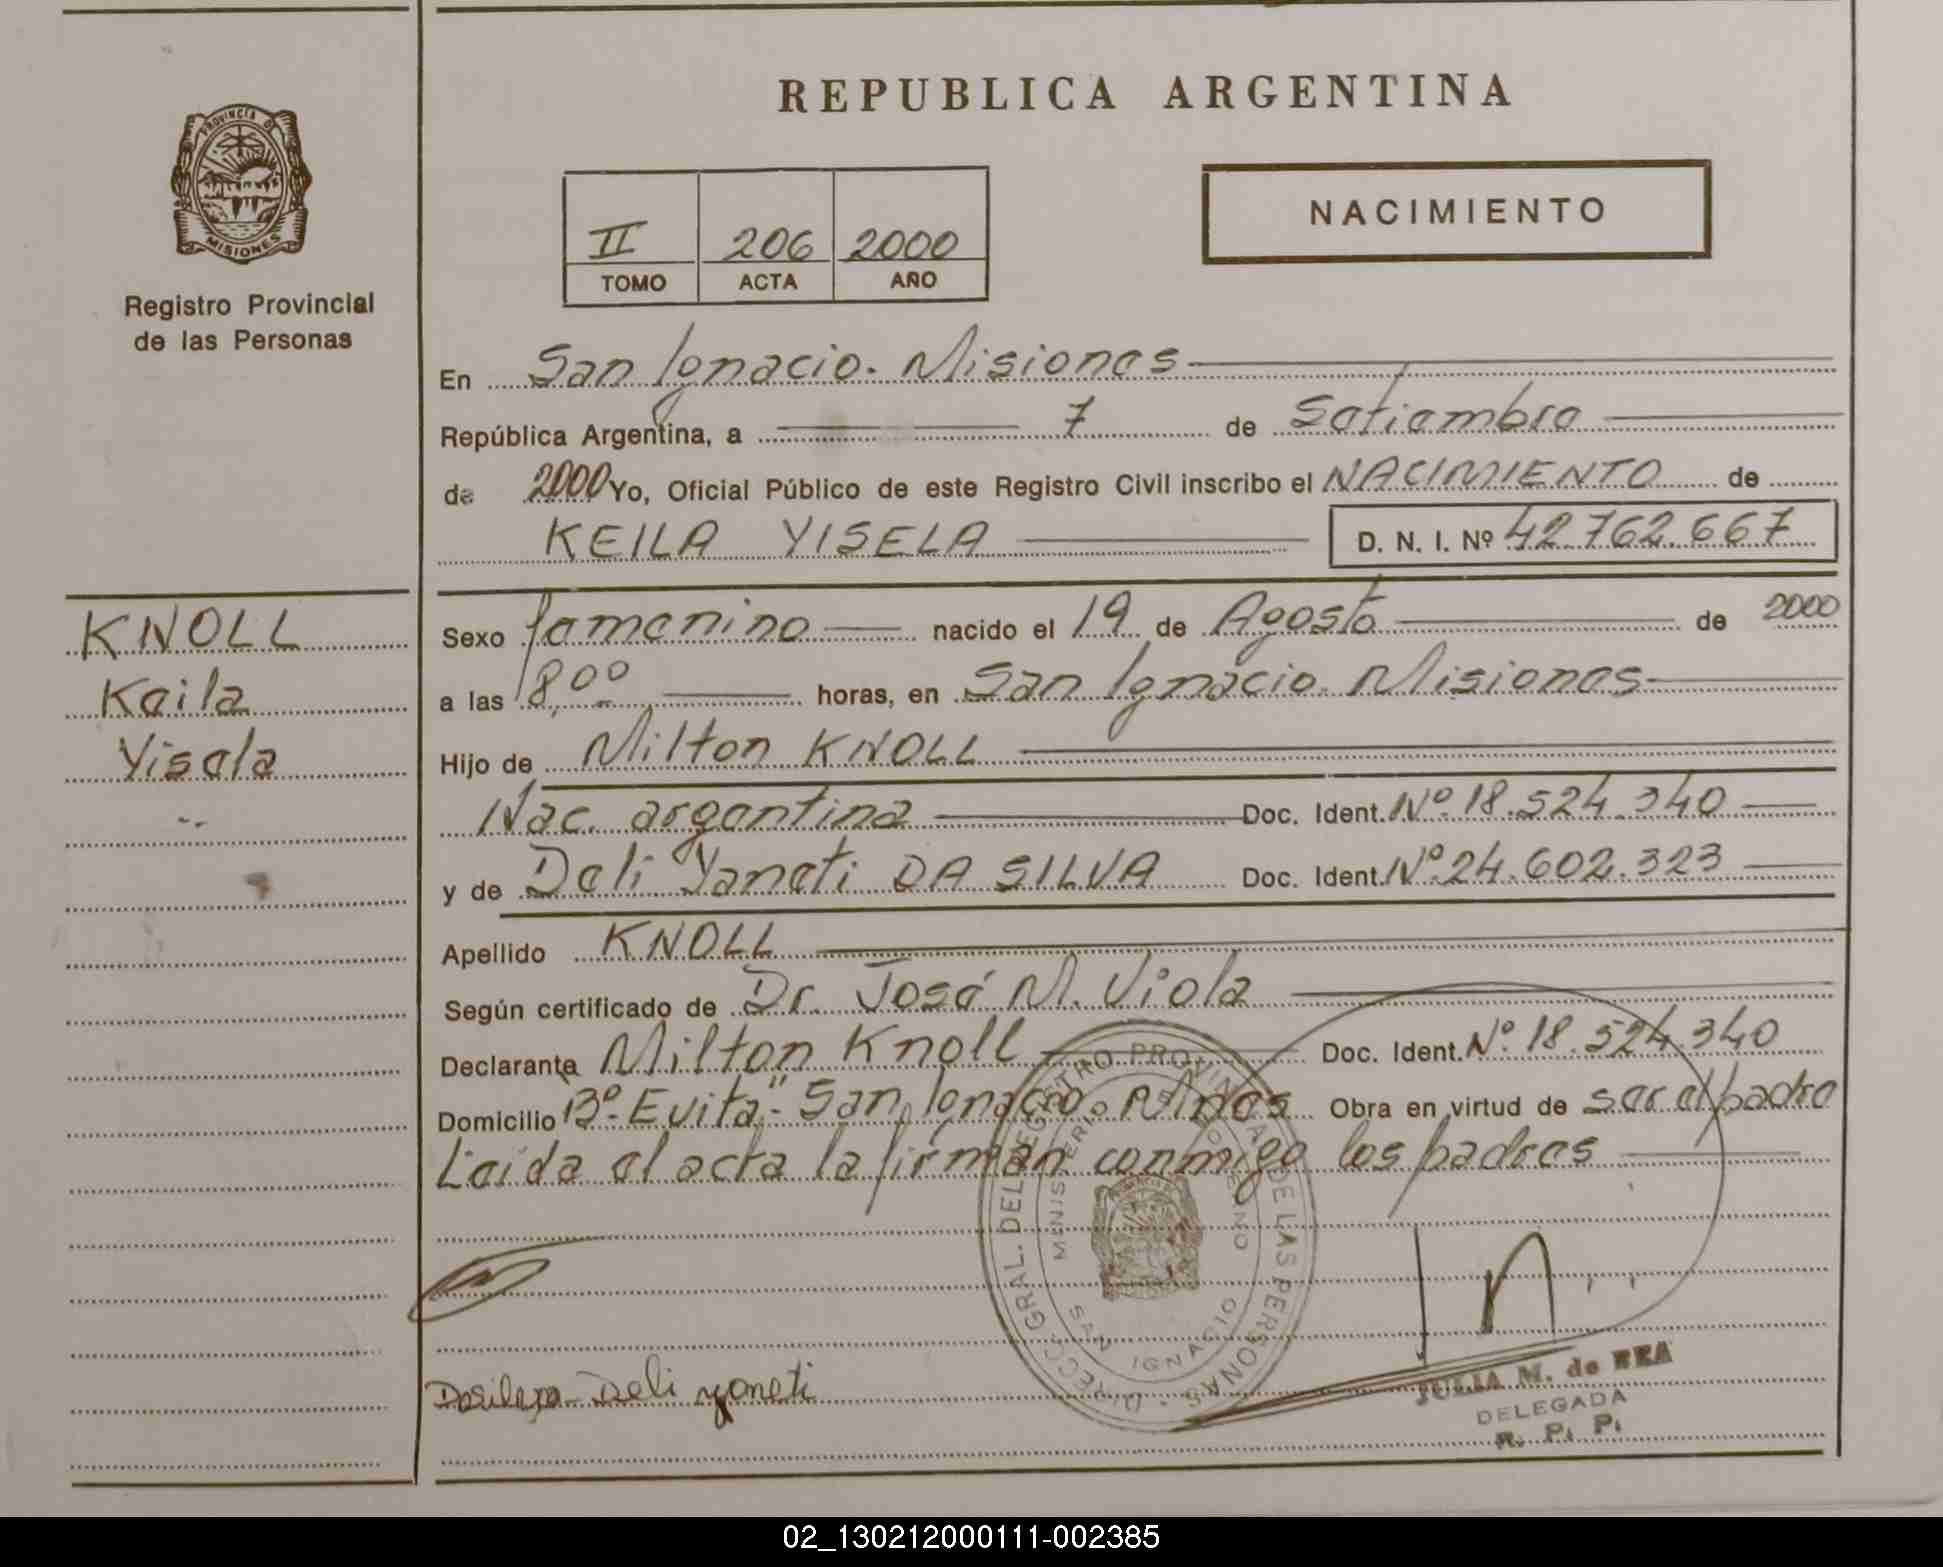 REPUBLICA ARGENTINA
PROVINCIA DE
MISIONES
Registro Provincial
de las Personas
II 206 2000
TOMO ACTA AÑO
NACIMIENTO
En San Ignacio. Misiones
República Argentina, a 7 de Setiembre
de 2000 Yo, Oficial Público de este Registro Civil inscribo el NACIMIENTO de
KEILA YISELA D. N. I. Nº 42.762.667
KNOLL
Keila
Yisela
Sexo femenino nacido el 19 de Agosto de 2000
a las 18,00 horas, en San Ignacio. Misiones
Hijo de Milton KNOLL
Nac. argentina Doc. Ident. Nº 18.524.340
y de Deli Yaneti DA SILVA Doc. Ident. Nº 24.602.323
Apellido KNOLL
Según certificado de Dr. José M. Viola
Declarante Milton Knoll Doc. Ident. Nº 18.524.340
Domicilio Bº "Evita" San Ignacio. Mnes Obra en virtud de ser el padre
Leída el acta la firman conmigo los padres
DIRECC. GRAL. DEL REGISTRO PROVINCIAL DE LAS PERSONAS
MINISTERIO DE GOBIERNO
SAN IGNACIO
Deli yaneti
JULIA M. de REA
DELEGADA
R. P. P.
02_130212000111-002385